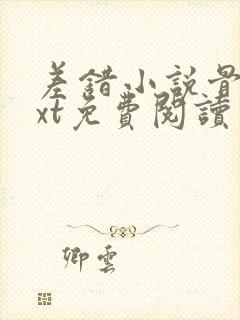 差錯小説最
xt免費閱讀
卿雲